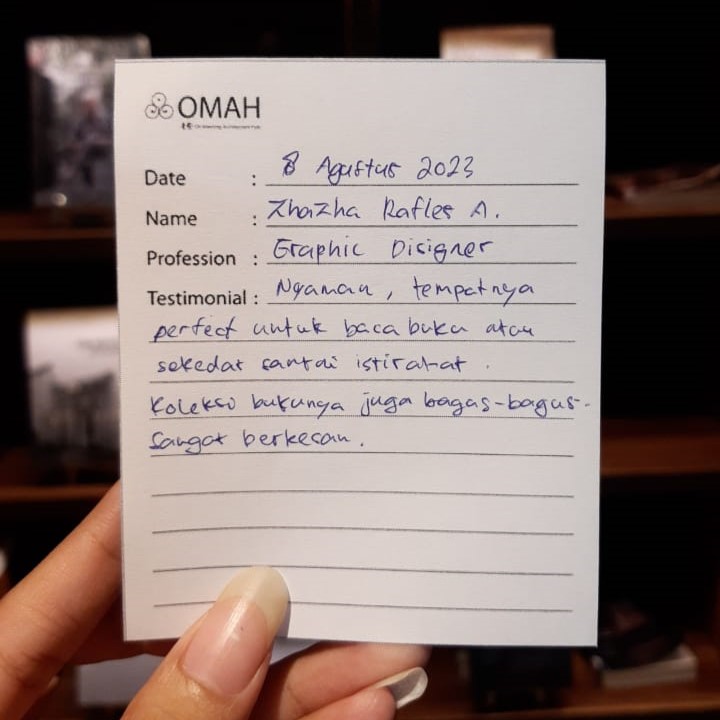 OMAH
Date : 8 Agustus 2023
Name : Zhazha Rafles A.
Profession : Graphic Disigner
Testimonial : Nyaman, tempatnya
perfect untuk baca buku atau
sekedar santai istirahat.
Koleksi bukunya juga bagus-bagus.
Sangat berkesan.